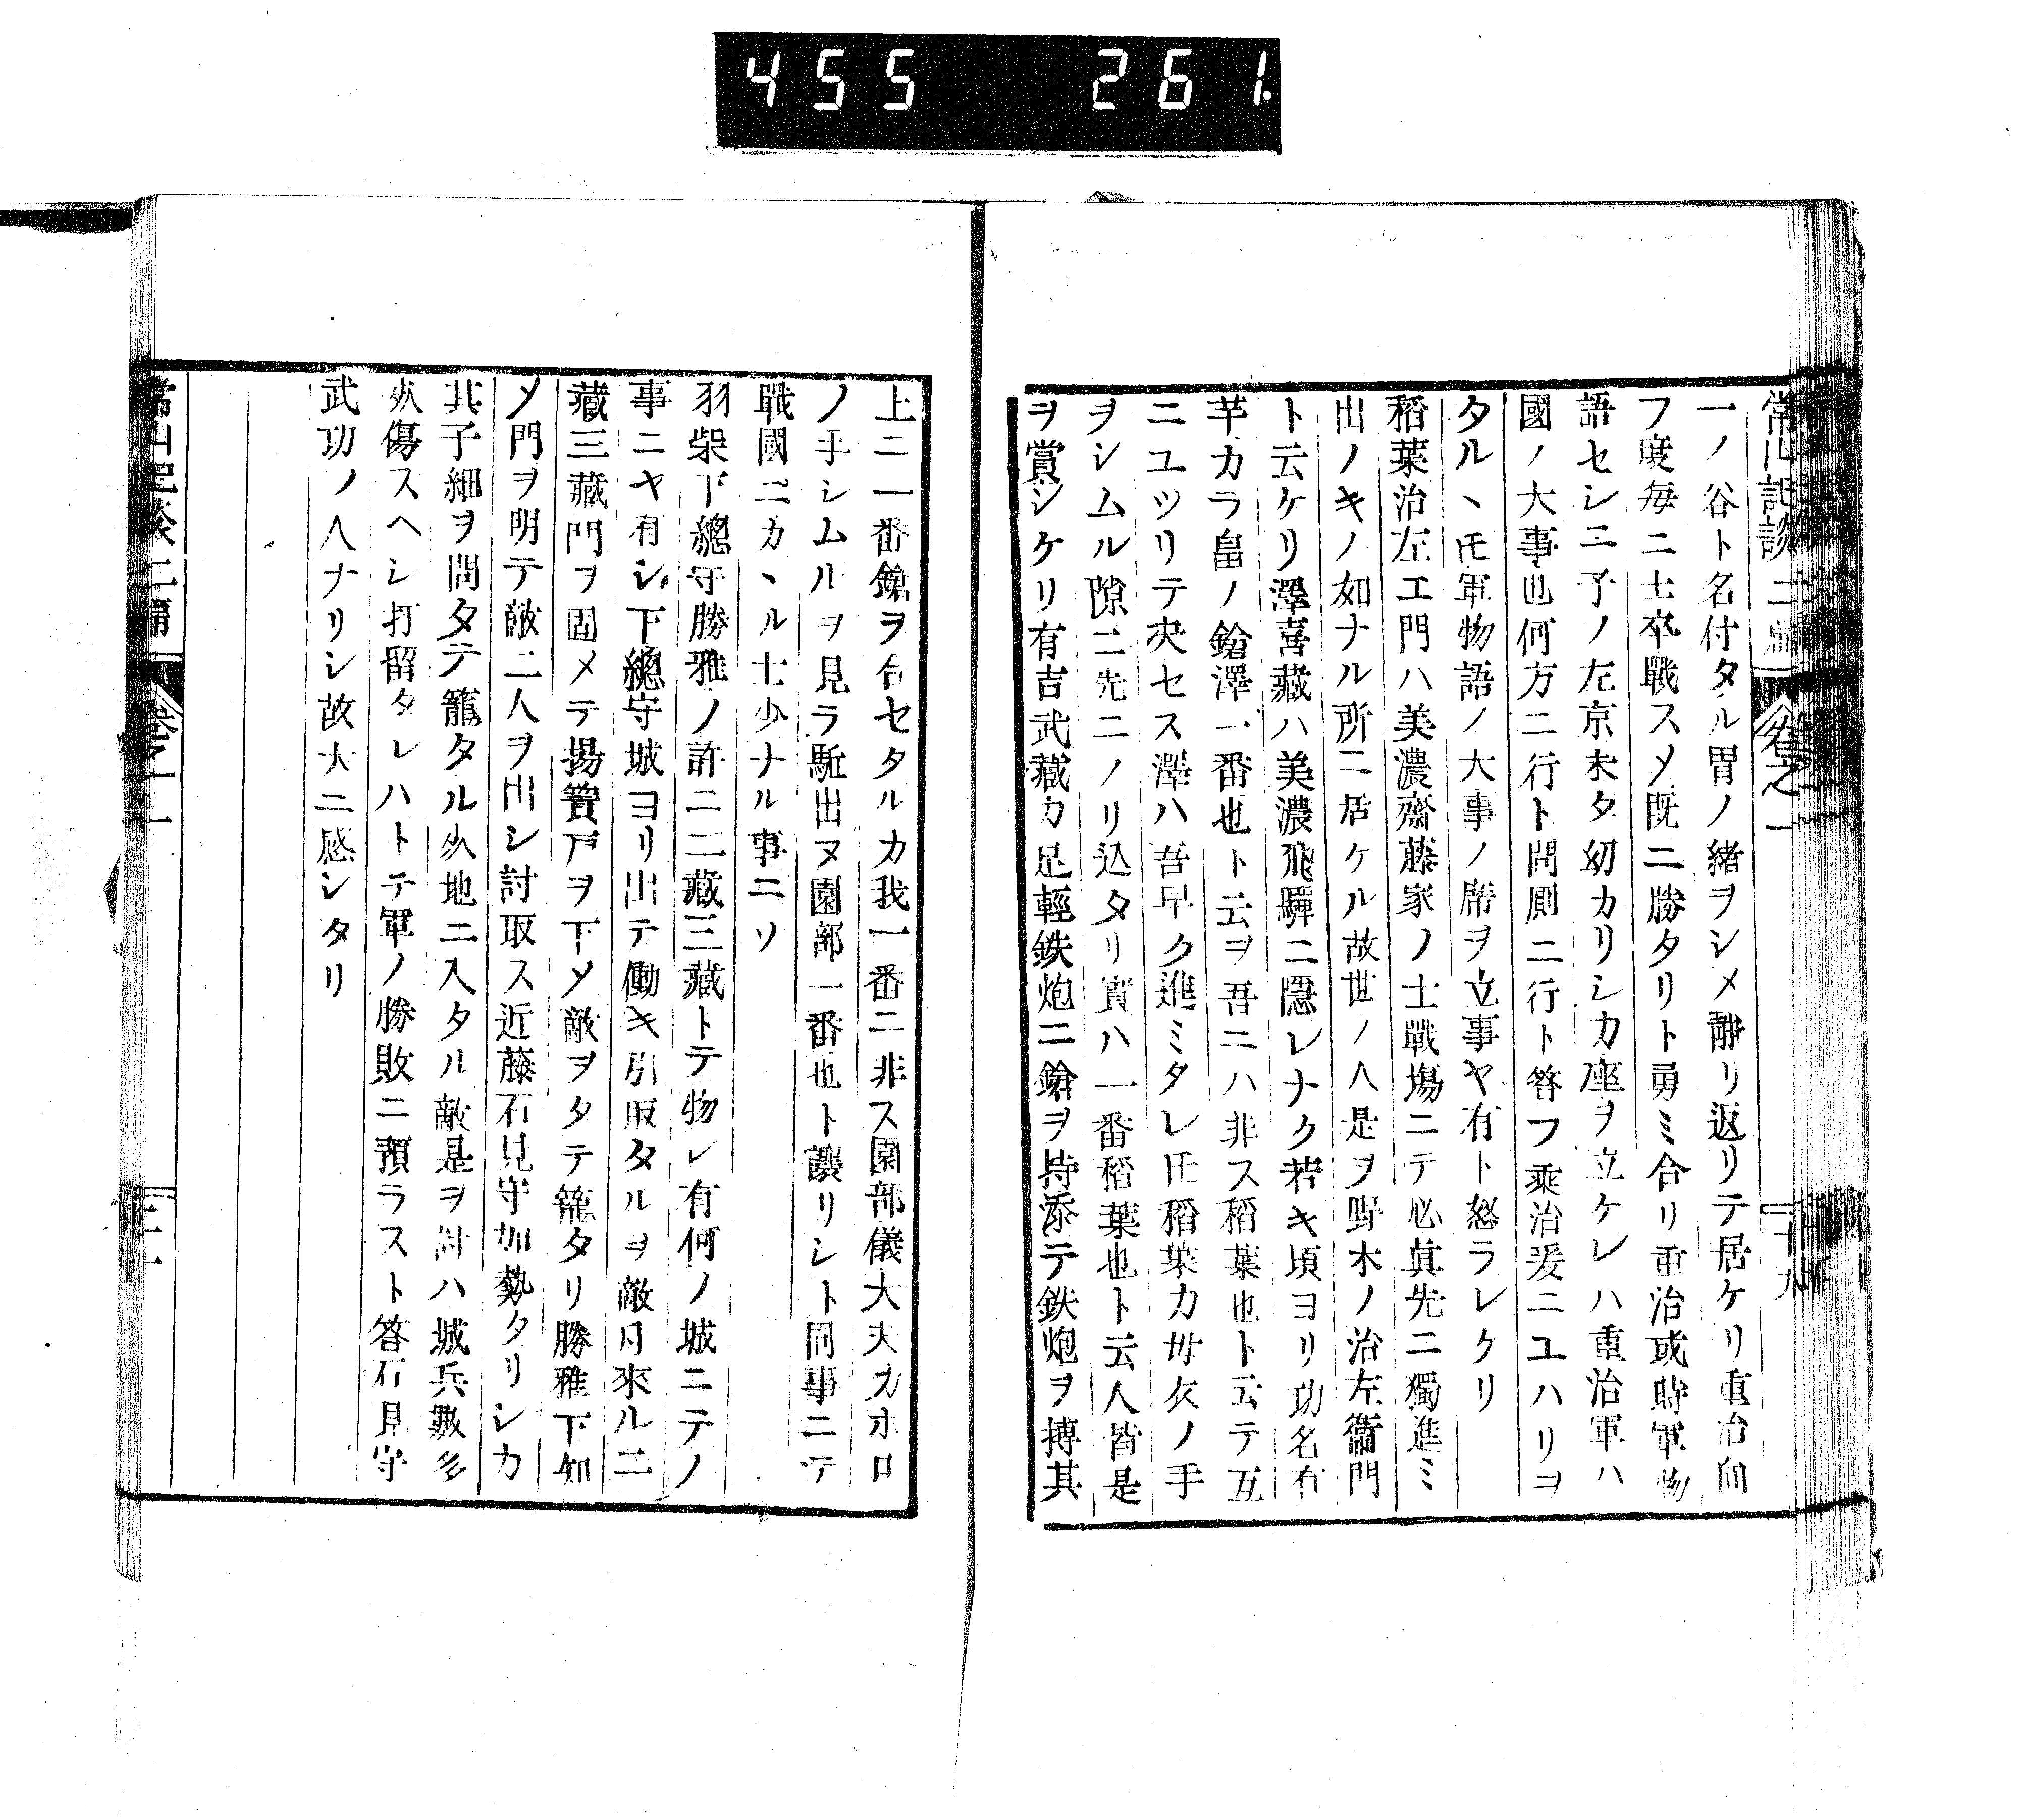 455 261.
常山紀談二編 卷之一 十九
一ノ谷ト名付タル冑ノ緒ヲシメ静リ返リテ居ケリ重治向
フ度毎ニ士卒戰スメ既ニ勝タリト勇ミ合リ重治或時軍物
語セシニ子ノ左京未タ幼カリシカ座ヲ立ケレハ重治軍ハ
國ノ大事也何方ニ行ト問厠ニ行ト答フ乘治爰ニユハリヲ
タルヽ𪜈軍物語ノ大事ノ席ヲ立事ヤ有ト怒ラレケリ
稻葉治左エ門ハ美濃齋藤家ノ士戰塲ニテ必眞先ニ獨進ミ
出ノキノ如ナル所ニ居ケル故世ノ人是ヲ野木ノ治左衞門
ト云ケリ澤喜藏ハ美濃飛驒ニ隱レナク若キ頃ヨリ功名有
芋カラ畠ノ鎗澤一番也ト云ヲ吾ニハ非ス稻葉也ト云テ互
ニユツリテ决セス澤ハ吾早ク進ミタレ𪜈稻葉カ母衣ノ手
ヲシムル隙ニ先ニノリ込タリ實ハ一番稻葉也ト云人皆是
ヲ賞シケリ有吉武藏カ足輕鉄炮ニ鎗ヲ持添テ鉄炮ヲ搏其
上ニ一番鎗ヲ合セタルカ我一番ニ非ス園部儀大夫カホロ
ノ手シムルヲ見ラ駈出ヌ園部一番也ト讓リシト同事ニテ
戰國ニカヽル士少ナル事ニソ
羽柴下總守勝雅ノ許ニ二藏三藏トテ物レ有何ノ城ニテノ
事ニヤ有シ下總守城ヨリ出テ働キ引取タルヲ敵月來ル二
藏三藏門ヲ固メテ揚簀戸ヲ下メ敵ヲタテ籠タリ勝雅下知
メ門ヲ明テ敵二人ヲ出シ討取ス近藤石見守加勢タリシカ
其子細ヲ問タテ籠タル𡖋地ニ入タル敵是ヲ討ハ城兵數多
𡖋傷スヘシ打留タレハトテ軍ノ勝敗ニ預ラスト答石見守
武功ノ人ナリシ故大ニ感シタリ
常山紀談二編 卷之一 二